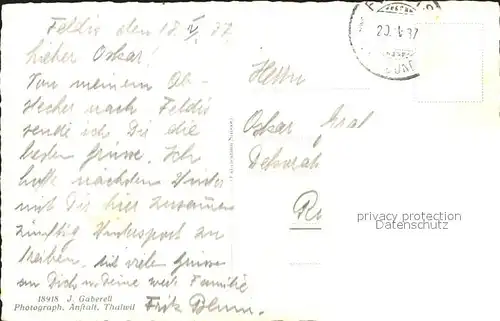 Feldis den 18. IV. 37
Lieber Oskar!
Von meinem Ab-
stecher nach Feldis
sende ich Dir die
besten Grüsse. Ich
hoffe nächsten Winter
mit Dir hier zusammen
zünftig Wintersport zu
treiben. Mit vielen Grüssen
an Dich u Deine werte Familie
Fritz Blum.
18918 J. Gaberell
Photograph. Anstalt, Thalwil
Herrn
Oskar Graf
Dekorat
privacy protection
Datenschutz